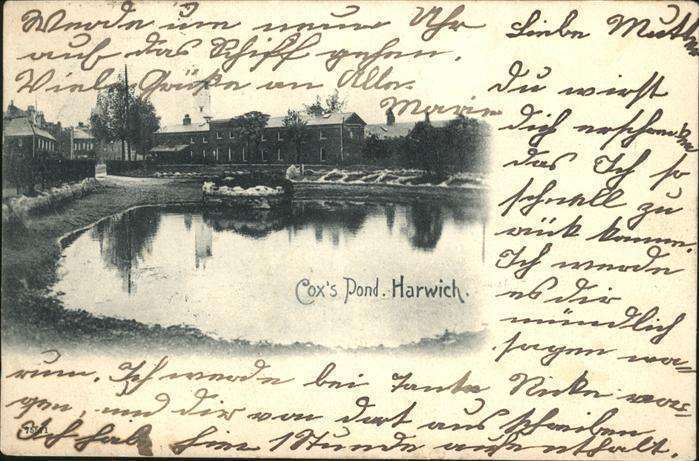 Liebe Mutter
Du wirst
dich erschrecken
das Ich so
schnell zu
rück komme.
Ich werde
es dir
mündlich
sagen wa-
rum. Ich werde bei Tante Rieke vor-
gen, und dir von dort aus schreiben
Ich habe hier 1 Stunde aufenthalt.
Werde um neun Uhr
auf das Schiff gehen.
Viele Grüße an Alle.
Marie
Cox's Pond. Harwich.